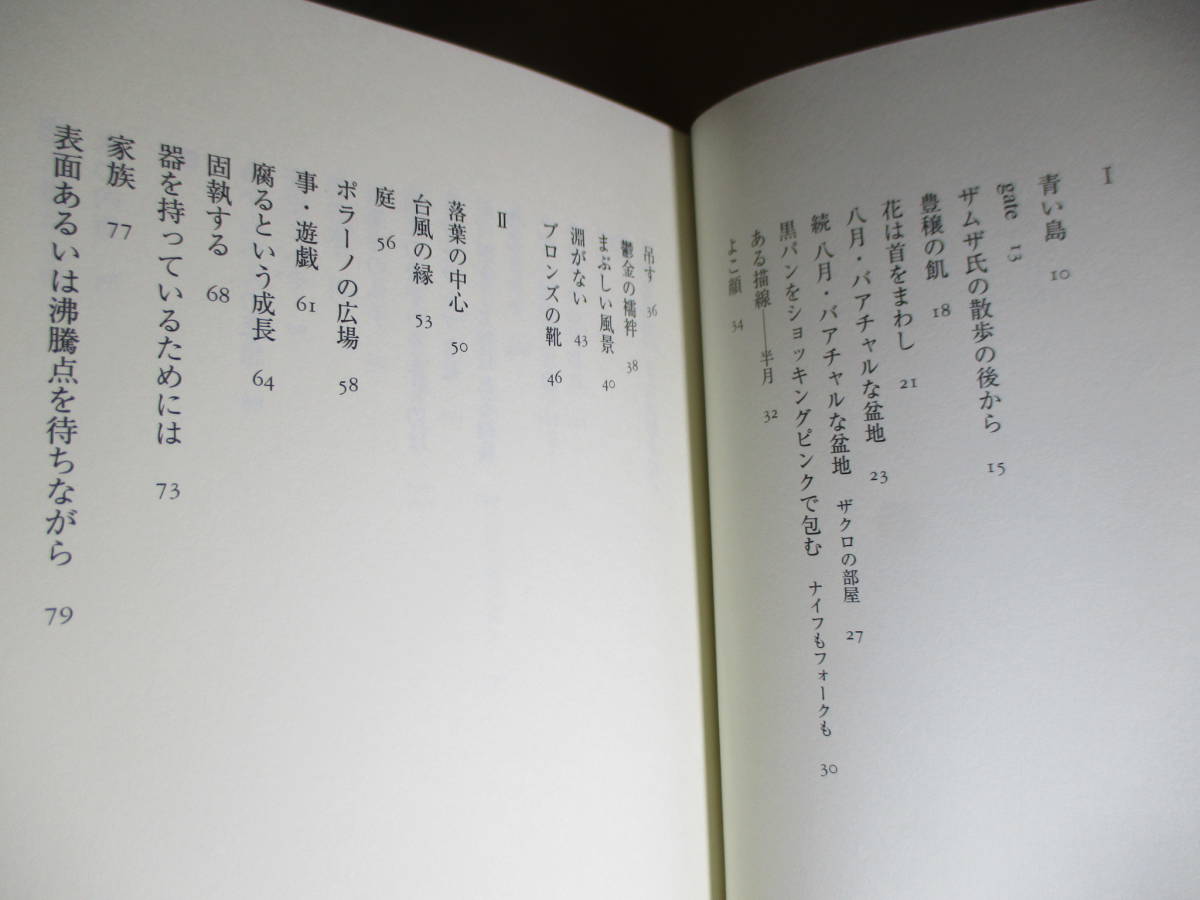 I
青い島 10
gate 13
ザムザ氏の散歩の後から 15
豊穣の飢 18
花は首をまわし 21
八月・バアチャルな盆地 23
続 八月・バアチャルな盆地 ザクロの部屋 27
黒パンをショッキングピンクで包む ナイフもフォークも 30
ある描線──半月 32
よこ顔 34
吊す 36
鬱金の襦袢 38
まぶしい風景 40
淵がない 43
ブロンズの靴 46
II
落葉の中心 50
台風の縁 53
庭 56
ポラーノの広場 58
事・遊戯 61
腐るという成長 64
固執する 68
器を持っているためには 73
家族 77
表面あるいは沸騰点を待ちながら 79